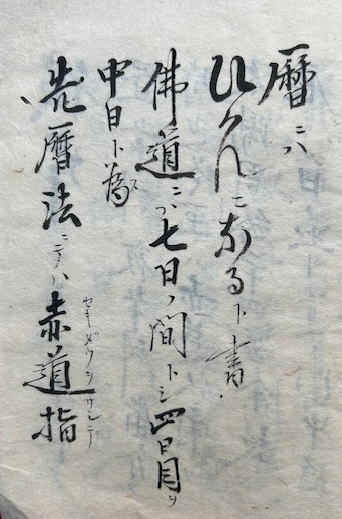 暦ニハ
ひがんになるト書
佛道ニハ七日ノ間トシ四日目ヲ
中日ト為ス
先暦法ニテハ赤道指
セキダウヲサシテ